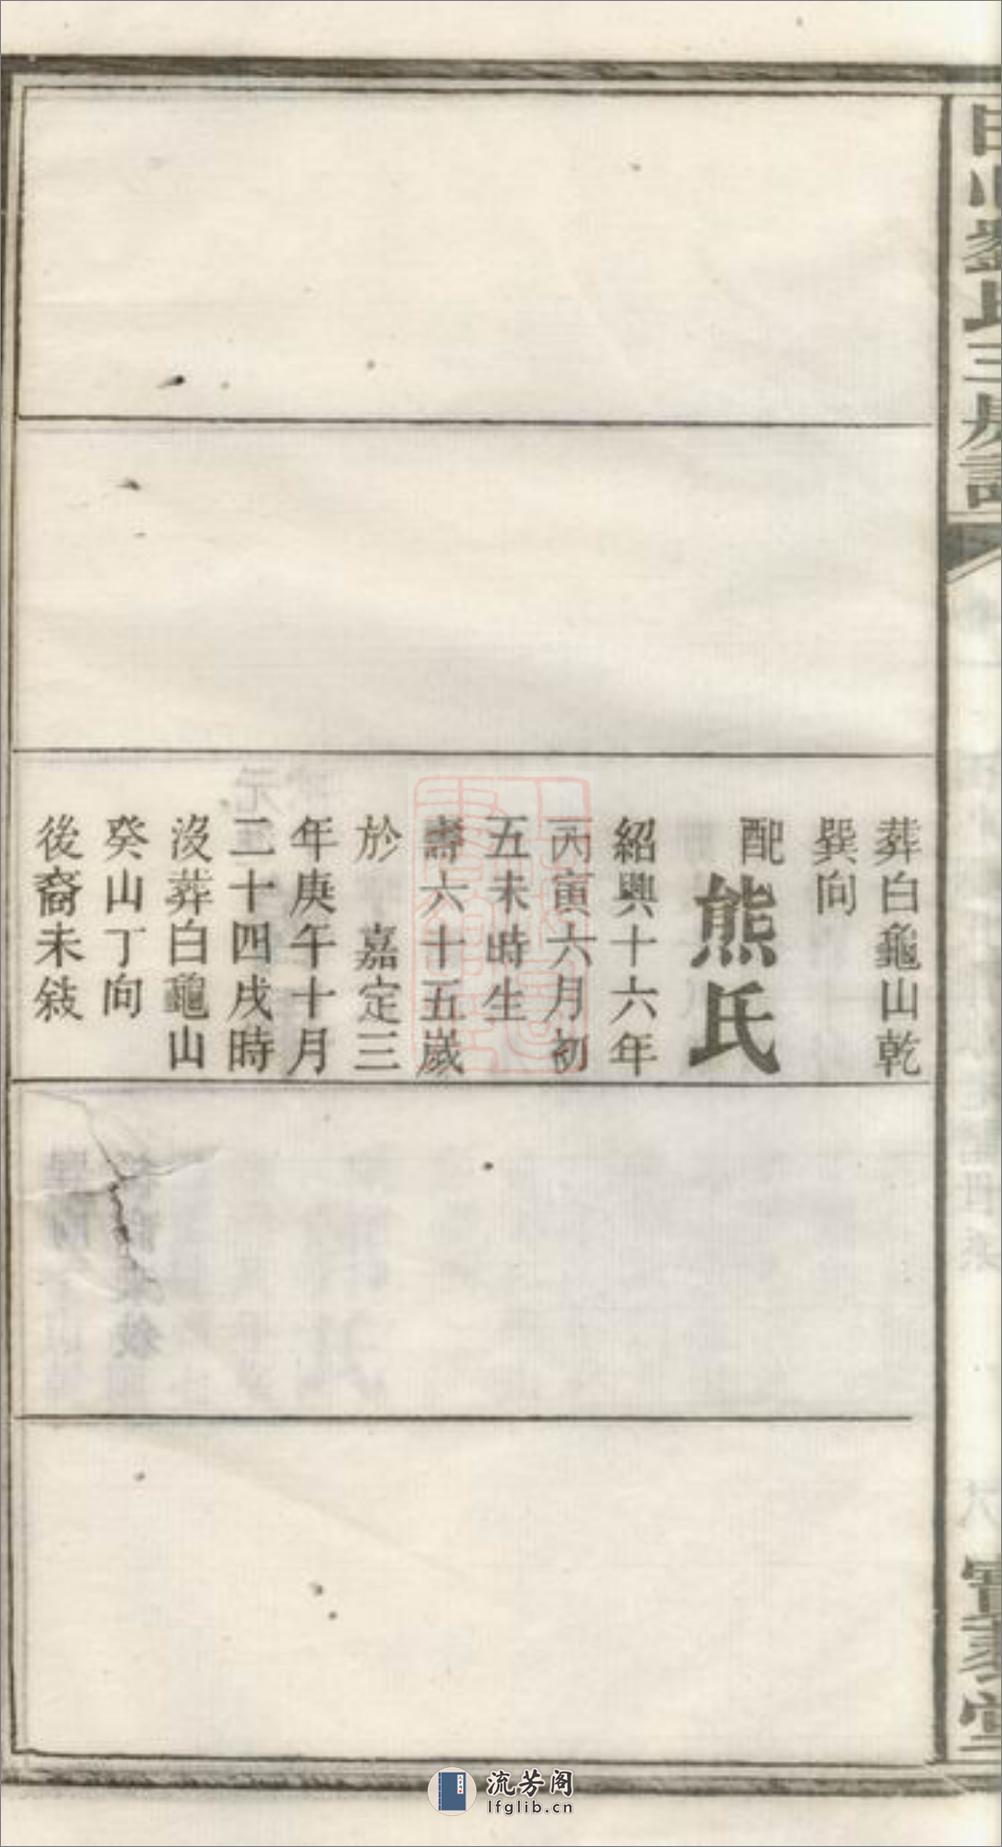 葬白龜山乾
巽向
配熊氏
紹興十六年
丙寅六月初
五未時生
壽六十五歲
於　嘉定三
年庚午十月
二十四戌時
沒葬白龜山
癸山丁向
後裔未敍
流芳阁
lfglib.cn